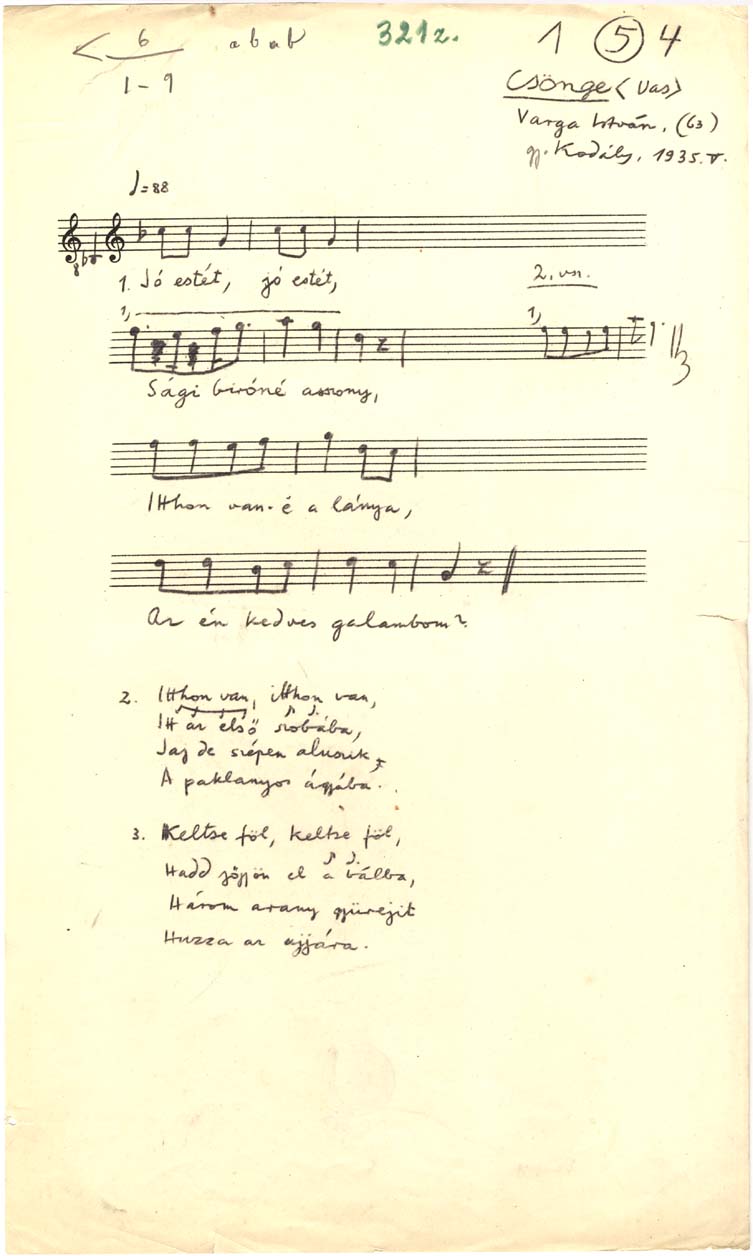 < 6 abab 321z. 1 5 4
1-9 Csönge <Vas>
Varga István, (63)
gy. Kodály, 1935. V.
♩=88
1. Jó estét, jó estét,
2. vsz.
1, 1,
Sági biróné asszony,
Itthon van-é a lánya,
Az én kedves galambom?
2. Itthon van, itthon van,
Itt az első szobába,
Jaj de szépen aluszik
A paklanyos ágyába.
3. Keltse föl, keltse föl,
Hadd jőjjön el a bálba,
Három arany gyürejit
Huzza az ujjára.